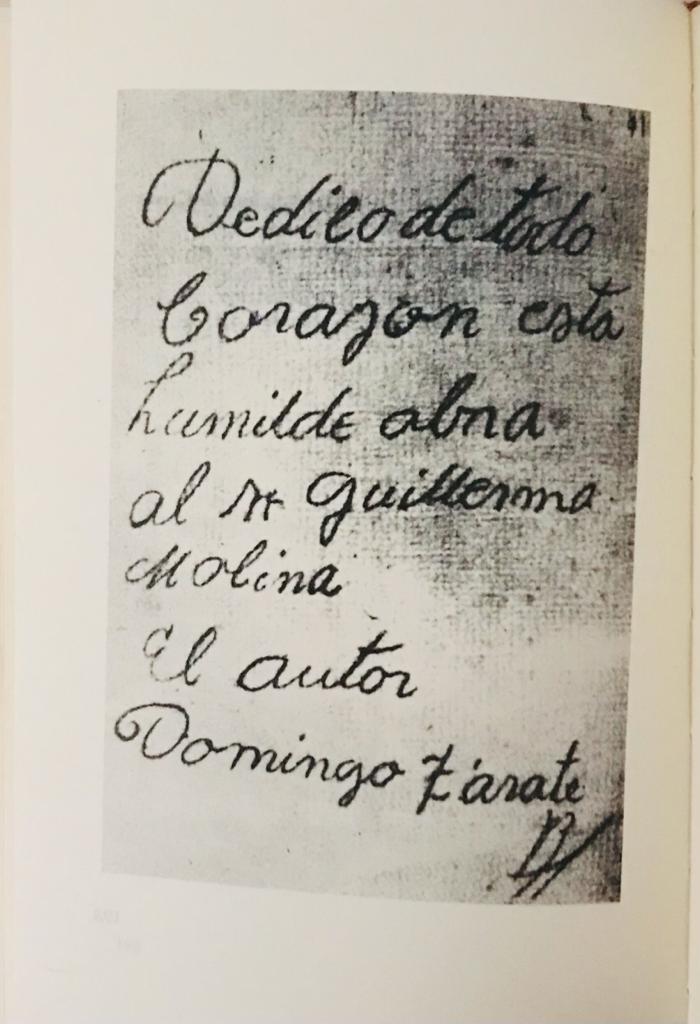 Dedico de todo
Corazon esta
humilde obra
al Sr Guillermo
Molina
El autor
Domingo Zárate